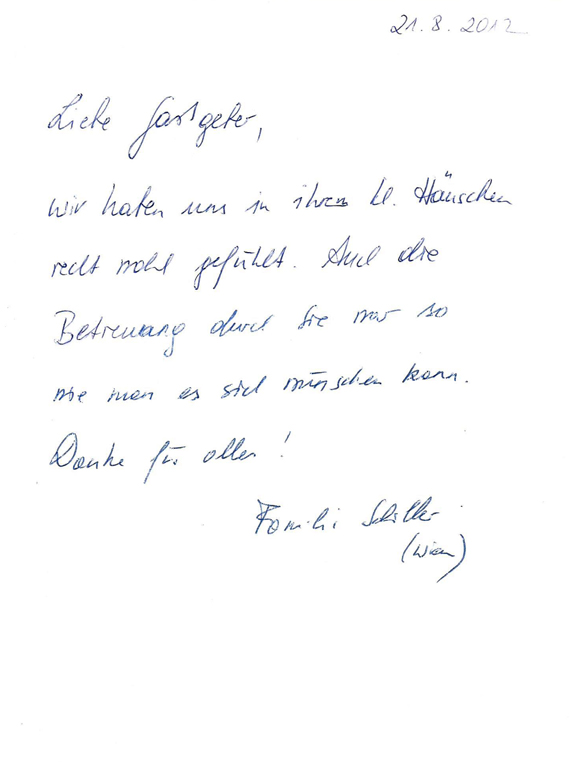 21. 8. 2012
Liebe Gastgeber,
wir haben uns in ihrem kl. Häuschen
recht wohl gefühlt. Auch die
Betreuung durch Sie war so
wie man es sich wünschen kann.
Danke für alles!
Familie Schiller
(Wien)